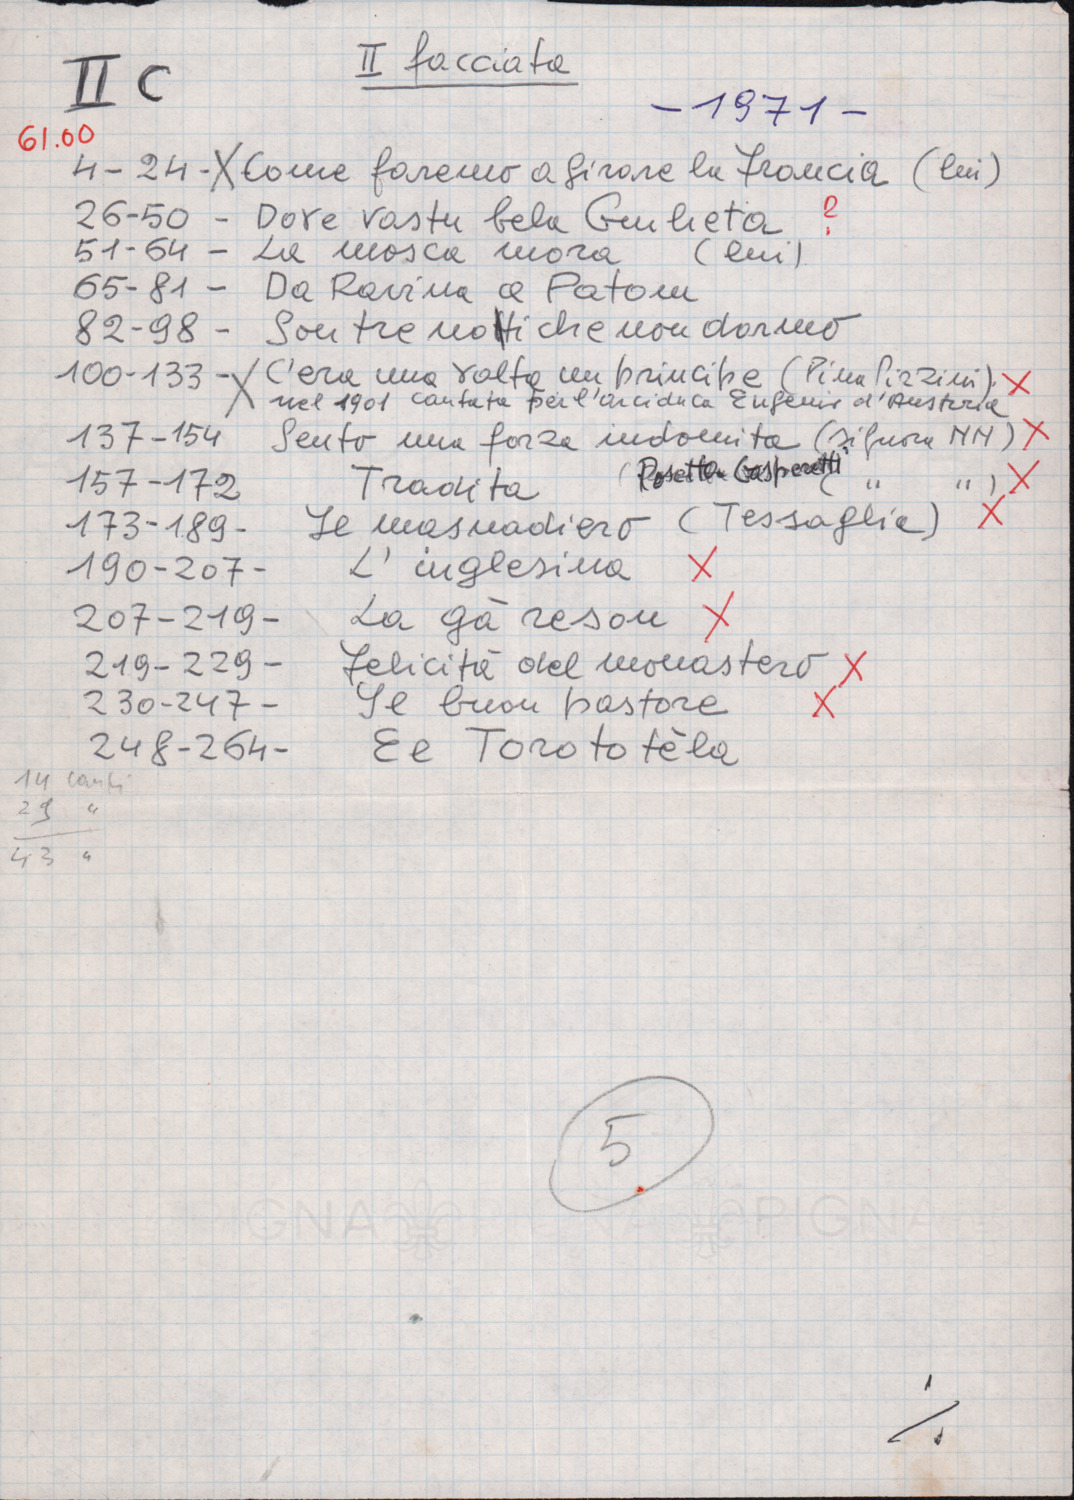 II C
II facciata
- 1971 -
61.00
4 - 24 - X Come faremo a girare la Francia (lui)
26-50 - Dove vastu bela Giulieta ?
51-64 - La mosca mora (lui)
65-81 - Da Ravina a Patom
82-98 - Son tre notti che non dormo
100-133 - X C'era una volta un principe (Pina Pizzini) X
nel 1901 cantata per l'arciduca Eugenio d'Austria
137-154 Sento una forza indomita (signora MM) X
157-172 Tradita (Rosetta Gasperetti) ( " " ) X
173-189- Il masnadiero (Tessaglia) X
190-207- L'inglesina X
207-219- La gà reson X
219-229- Felicità del monastero X
230-247- Il buon pastore X
248-264- Ee Torototèla
14 canti
29 "
43 "
5
GNA PIGNA